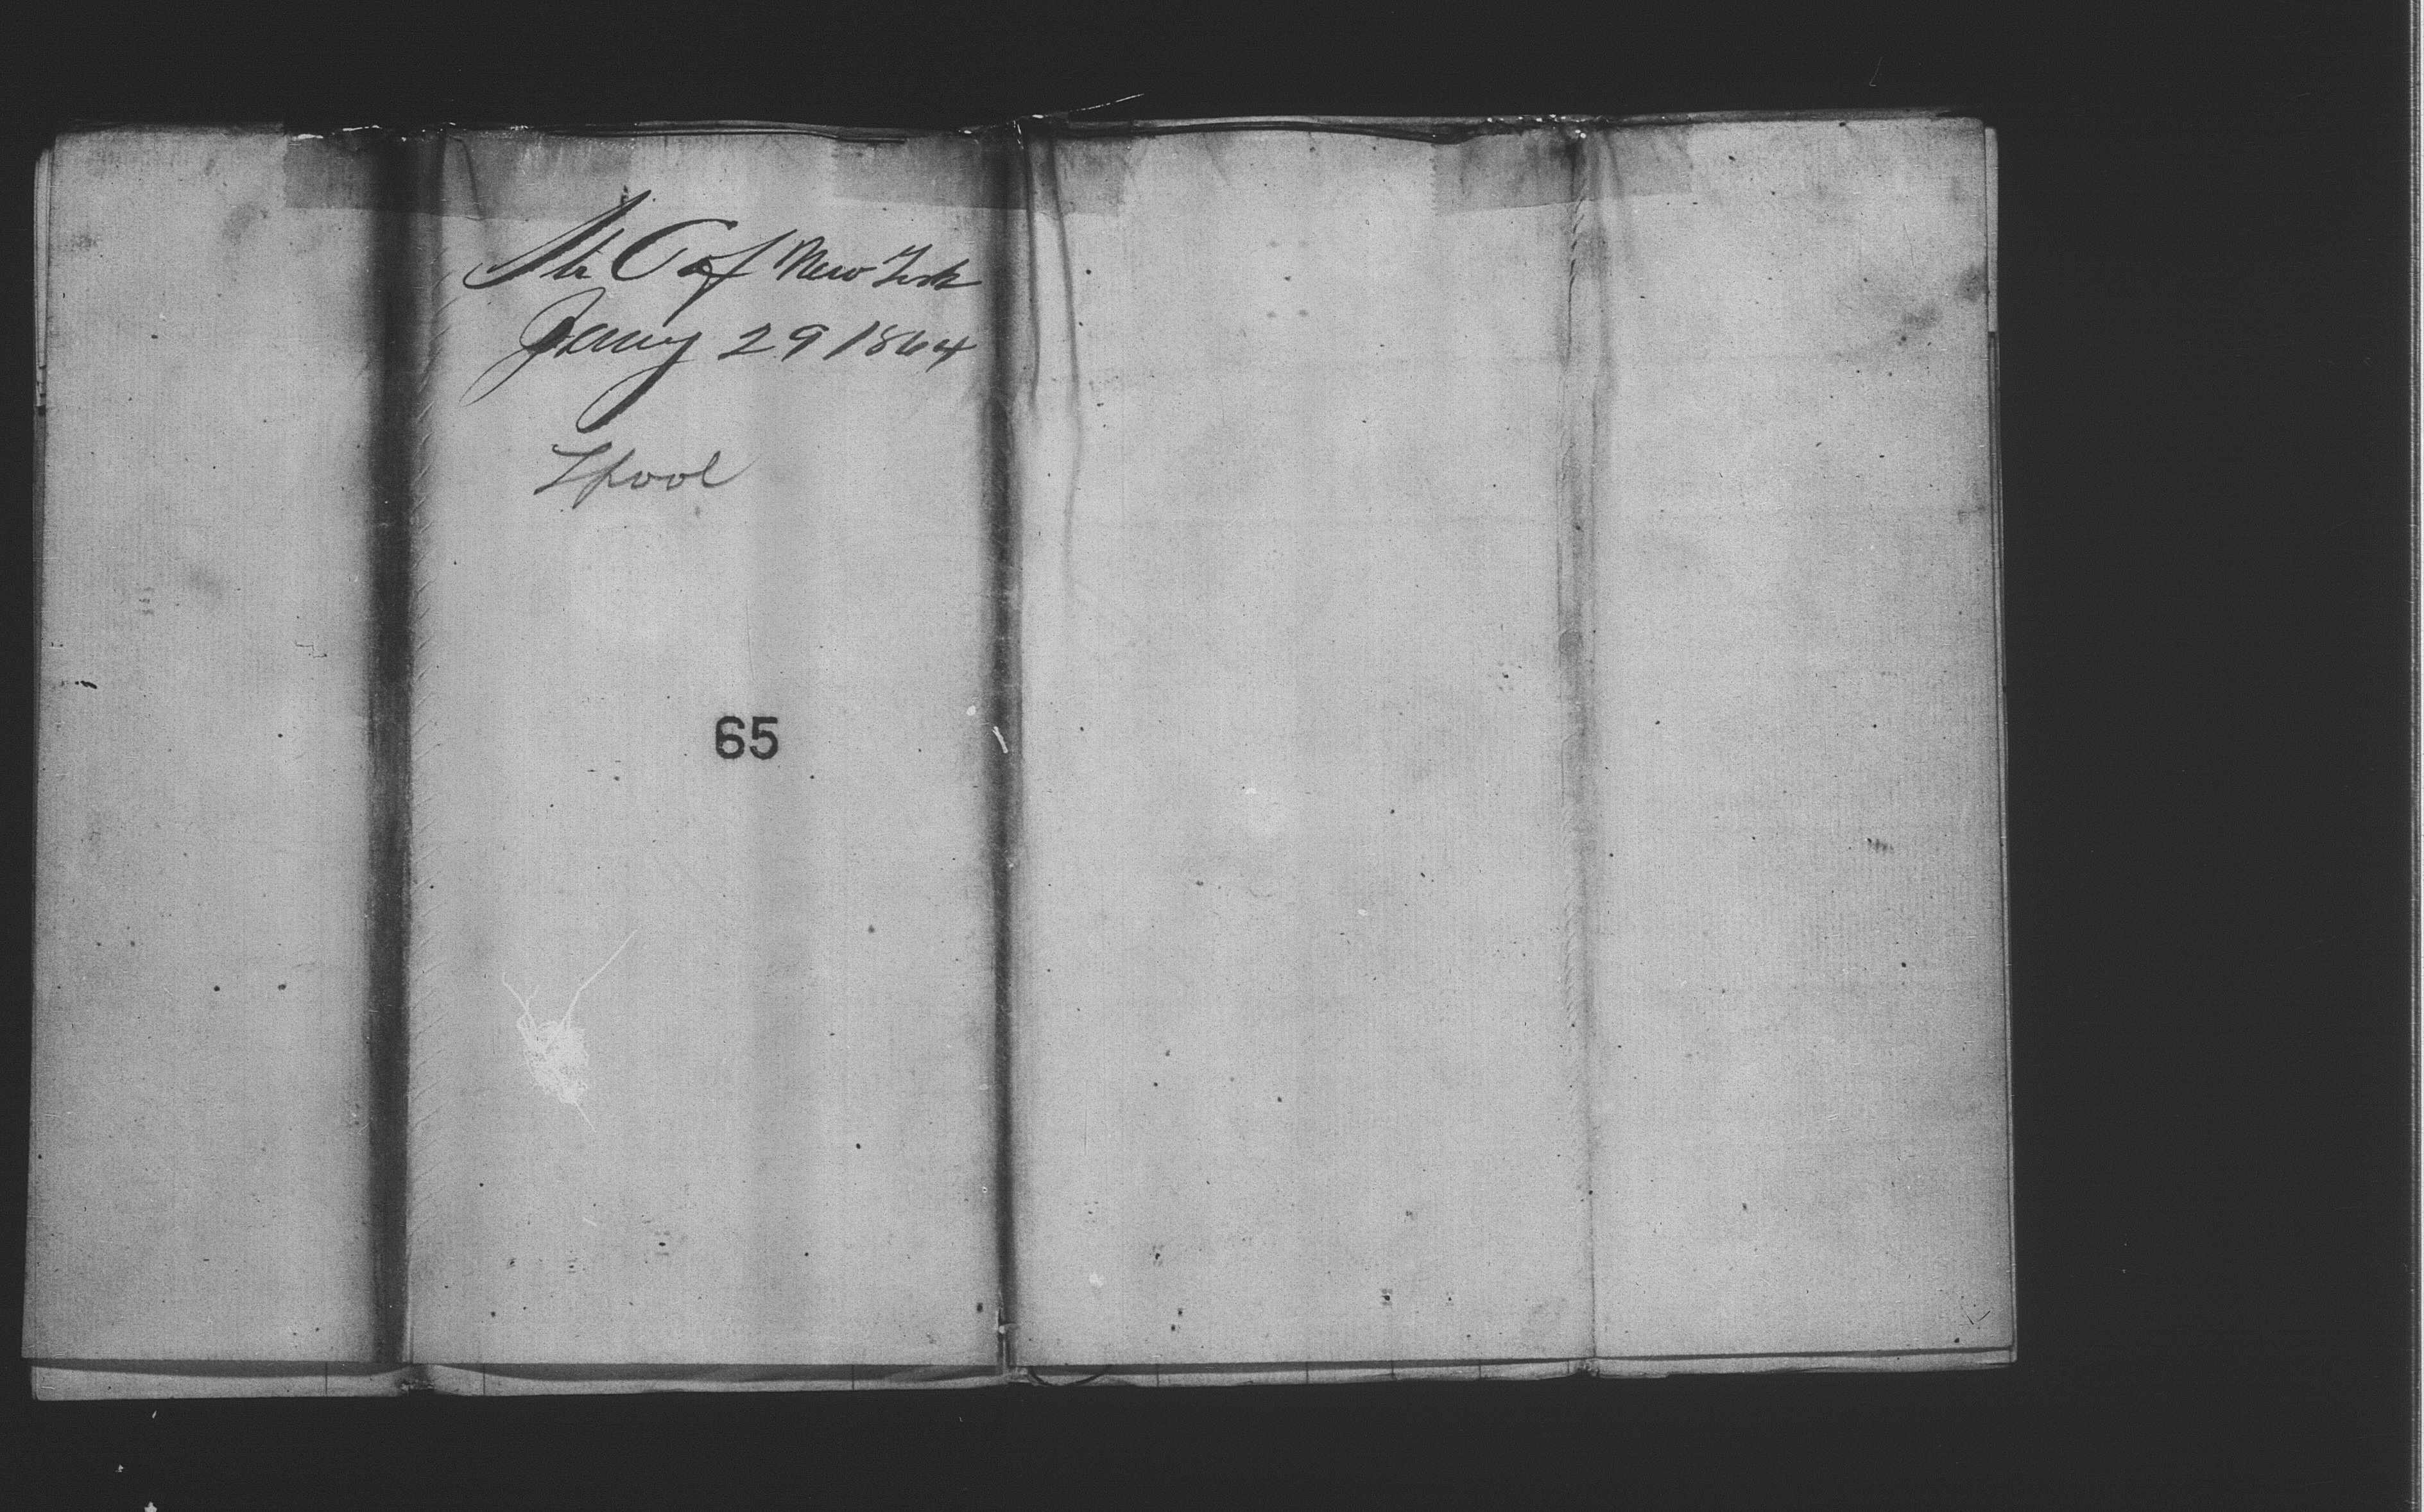 Str C of New York
Jany 29 1864
Lpool
65